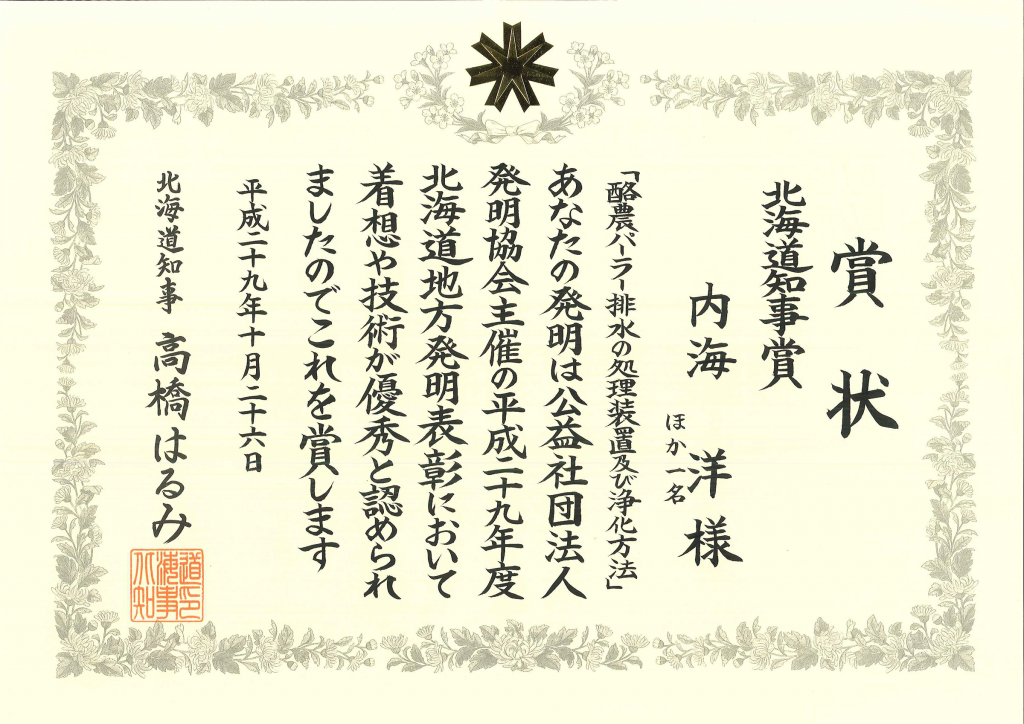 賞状
北海道知事賞
内海 洋 様
ほか一名
「酪農パーラー排水の処理装置及び浄化方法」
あなたの発明は公益社団法人
発明協会主催の平成二十九年度
北海道地方発明表彰において
着想や技術が優秀と認められ
ましたのでこれを賞します
平成二十九年十月二十六日
北海道知事 高橋はるみ
道印
海事
北知